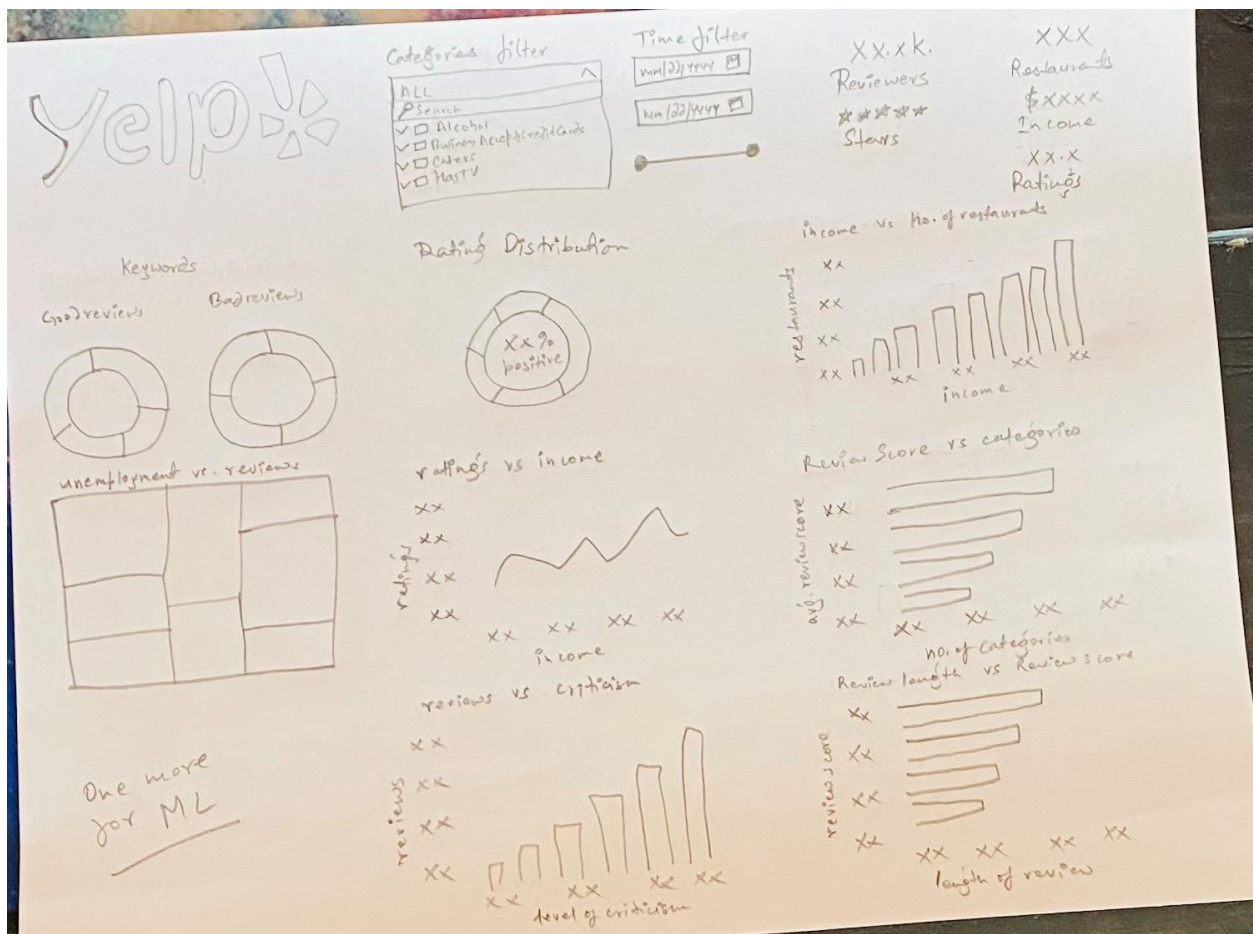 yelp
Categories filter
ALL
Search
Alcohol
Caters
HasTV
Time filter
mm/dd/yyyy
mm/dd/yyyy
XX.XK.
Reviewers
Stars
XXX
Restaurants
$XXXX
Income
XX.X
Ratings
Keywords
Good reviews
Bad reviews
Rating Distribution
XX%
positive
income vs No. of restaurants
restaurants
XX
XX
XX
XX
XX XX XX XX
income
unemployment vs. reviews
ratings vs income
ratings
XX
XX
XX
XX
XX XX XX XX
income
Review Score vs categories
avg. review score
XX
XX
XX
XX
XX XX XX XX
no. of categories
One more
for ML
reviews vs criticism
reviews
XX
XX
XX
XX
XX XX XX XX
level of criticism
Review length vs Review score
review score
XX
XX
XX
XX
XX XX XX XX
length of review